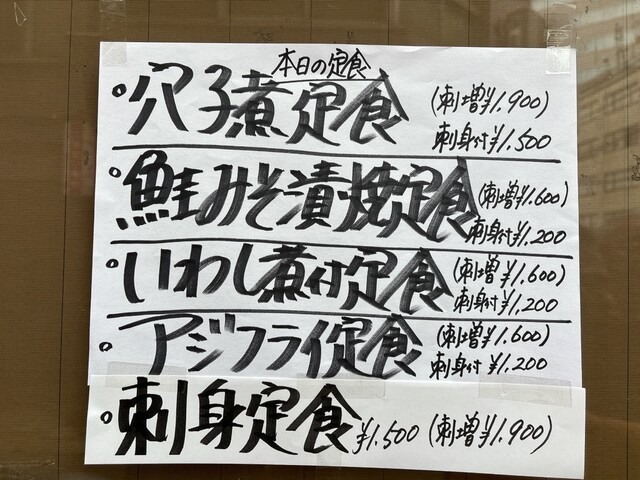 本日の定食
穴子煮定食 (刺増¥1.900)
刺身付¥1.500
鮭みそ漬焼定食 (刺増¥1.600)
刺身付¥1.200
いわし煮付定食 (刺増¥1.600)
刺身付¥1.200
アジフライ定食 (刺増¥1.600)
刺身付 ¥1.200
刺身定食 ¥1.500 (刺増¥1.900)